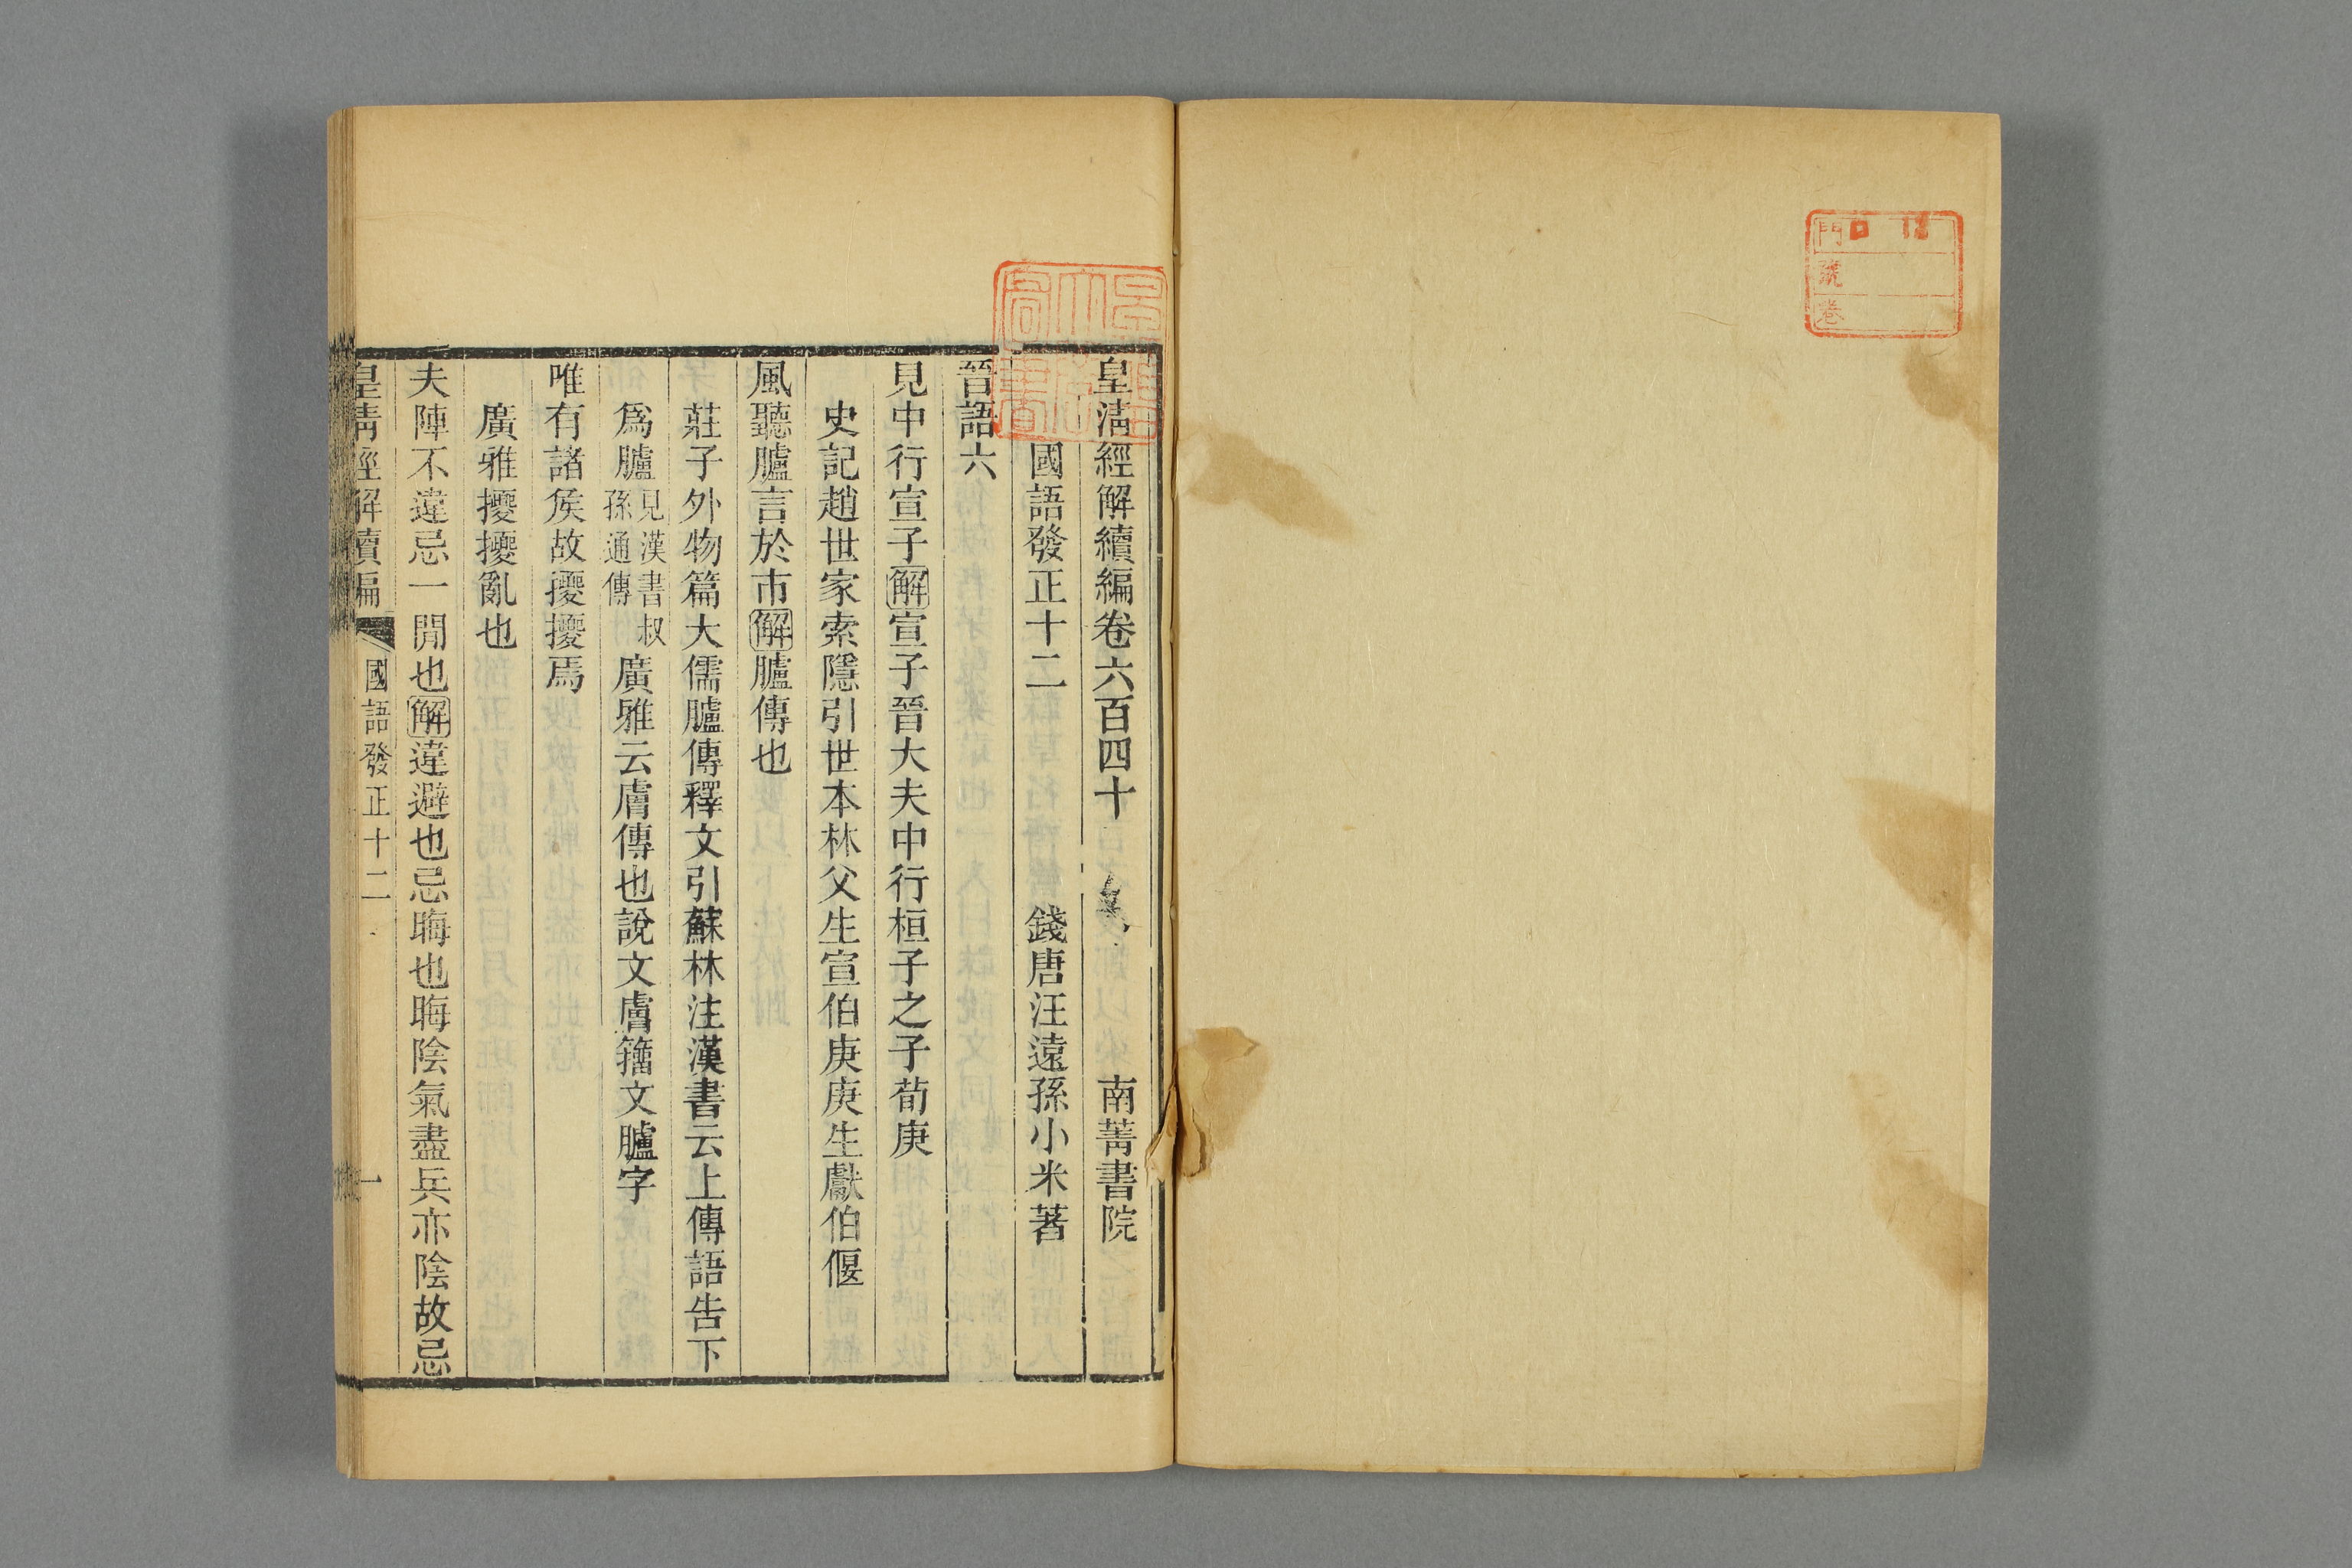 門
號
卷
皇清經解續編卷六百四十
南菁書院
國語發正十二
錢唐汪遠孫小米著
晉語六
見中行宣子解宣子晉大夫中行桓子之子荀庚
史記趙世家索隱引世本林父生宣伯庚庚生獻伯偃
風聽臚言於市解臚傳也
莊子外物篇大儒臚傳釋文引蘇林注漢書云上傳語告下
爲臚見漢書叔孫通傳廣雅云膚傳也說文膚籀文臚字
唯有諸矦故擾擾焉
廣雅擾擾亂也
夫陣不違忌一閒也解違避也忌晦也晦陰氣盡兵亦陰故忌
皇清經解續編
國語發正十二
一